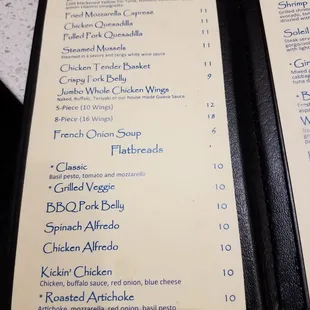 Fried Mozzarella Caprese 11
Chicken Quesadilla 11
Pulled Pork Quesadilla 11
Steamed Mussels 11
Steamed in a savory and tangy white wine sauce
Chicken Tender Basket 11
Crispy Pork Belly 9
Jumbo Whole Chicken Wings
Naked, Buffalo, Teriyaki or our house made Guava Sauce
5-Piece (10 Wings) 12
8-Piece (16 Wings) 18
French Onion Soup 6
Flatbreads
* Classic 10
Basil pesto, tomato and mozzarella
* Grilled Veggie 10
BBQ Pork Belly 10
Spinach Alfredo 10
Chicken Alfredo 10
Kickin' Chicken 10
Chicken, buffalo sauce, red onion, blue cheese
* Roasted Artichoke 10
Artichoke, mozzarella, red onion, basil pesto
Shrimp
Soleil